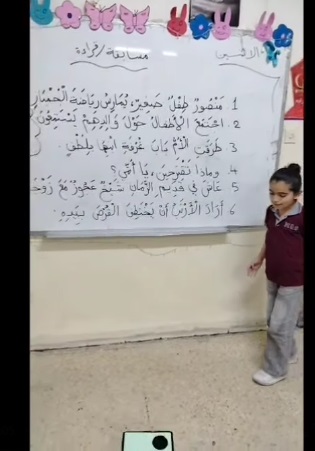 الاثنين
مسابقة/قراءة
1. منصورٌ طِفْلٌ صَغيرٌ، يُمارِسُ رِياضَةَ الْجُمْبازِ
2. اجْتَمَعَ الأطفالُ حَوْلَ والِدِهِمْ يَسْتَمِعونَ
3. طَرَقَتِ الْأُمُّ بابَ غُرْفَةِ ابْنِها بِلُطْفٍ.
4. وماذا تَقْتَرِحينَ، يا أُمّي؟
5. عاشَ في قَديمِ الزَّمانِ شَيْخٌ عَجوزٌ مَعَ زَوْجَ
6. أَرادَ الْأَرْنَبُ أَنْ